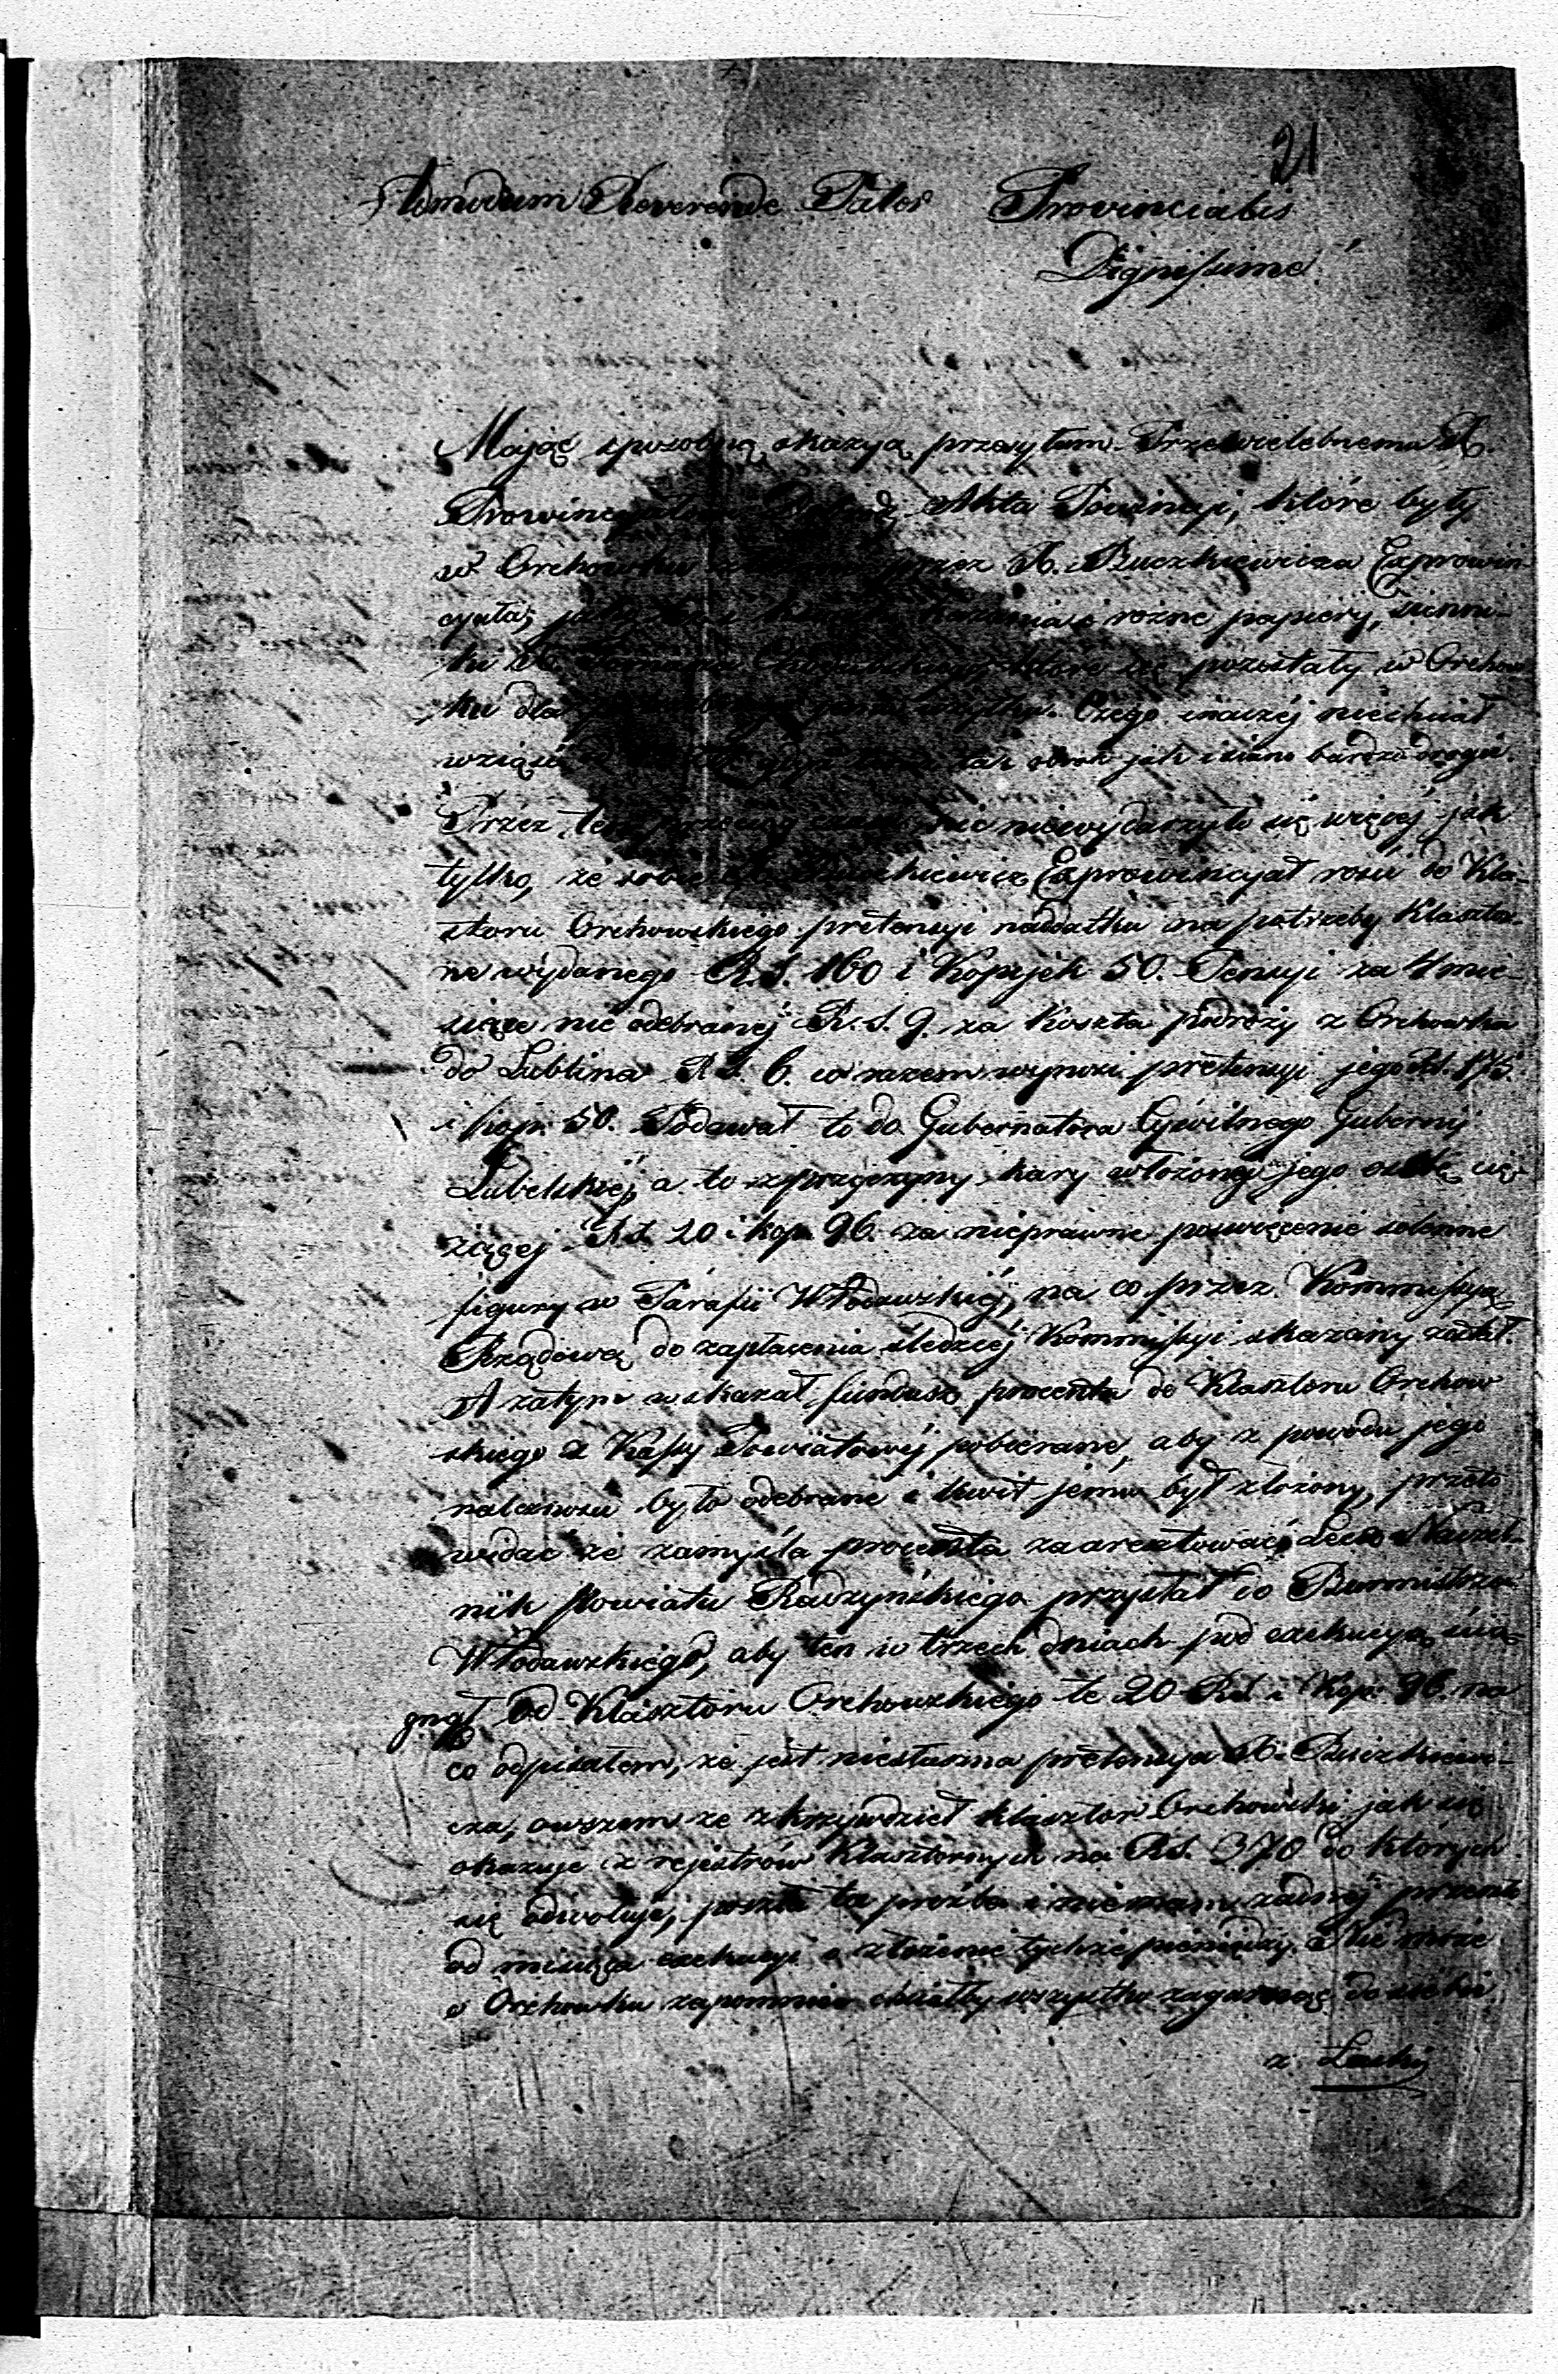 21
Admodum Reverende Pater Provincialis
Dignissime!
Mając sposobną okazyą przesyłam Przewielebnemu X.
Akta Powincyi, które były
w Orchowku przez X. Buczkiewicza Exprowin-
cyała, rozne papiery,
pozostały w Orchow
ku dla Czego inaczéj niechciał
wziąść jak i siano bardzo drogie.
Przez ten nic niewydarzyło się więcéj jak
tylko, że sobie Exprowincyał rości do Kla-
sztoru Orchowskiego pretensyi naddatku na potrzeby Klasztor
ne wydanego R.S. 160 i Kopijek 50. Pensyi za 4 mie-
siące nie odebranéj R.S. 9. za koszta podróży z Orchowka
do Lublina R.S. 6. co razem wynosi pretensyi jego RS. 175.
i kop. 50. Podawał to do Gubernatora Cywilnego Gubernij
Lubelskiéj, a to z przyczyny kary włożonéj jego osobę cię-
żącej RS. 20 i kop. 96. za nieprawne poswięcenie solenne
figury w Parafii Włodawskiéj, na co przez Kommissyą
Rządową do zapłacenia Kommissyi skazany został.
A zatym wskazał fundusz procenta do Klasztoru Orchow
skiego z Kassy Powiatowéj pobierane, aby z powodu jego
było odebrane i kwit jemu był złożony, przeto
widac że zamyśla procenta zaaresztować, Lecz Naczel-
nik Powiatu Radzynskiego przysłał do Burmistrza
Włodawskiego, aby ten w trzech dniach pod exekucyą ścią-
gnął od Klasztoru Orchowskiego te 20 RS. i Kop. 96. na
co odpisałem, że jest niesłuszna pretensya X. Buczkiewi-
cza, owszem że zkrzywdził klasztor Orchowski jak się
okazuje z rejestrów Klasztornych na RS. 370 do których
się odwołuję, poszła ta prozba i niemam żadnéj
od miesiąca exekucyi o złożenie tychże pieniędzy. Nie może
o Orchowku zapomnieć chciałby wszystko zagarnąć do siebie
z